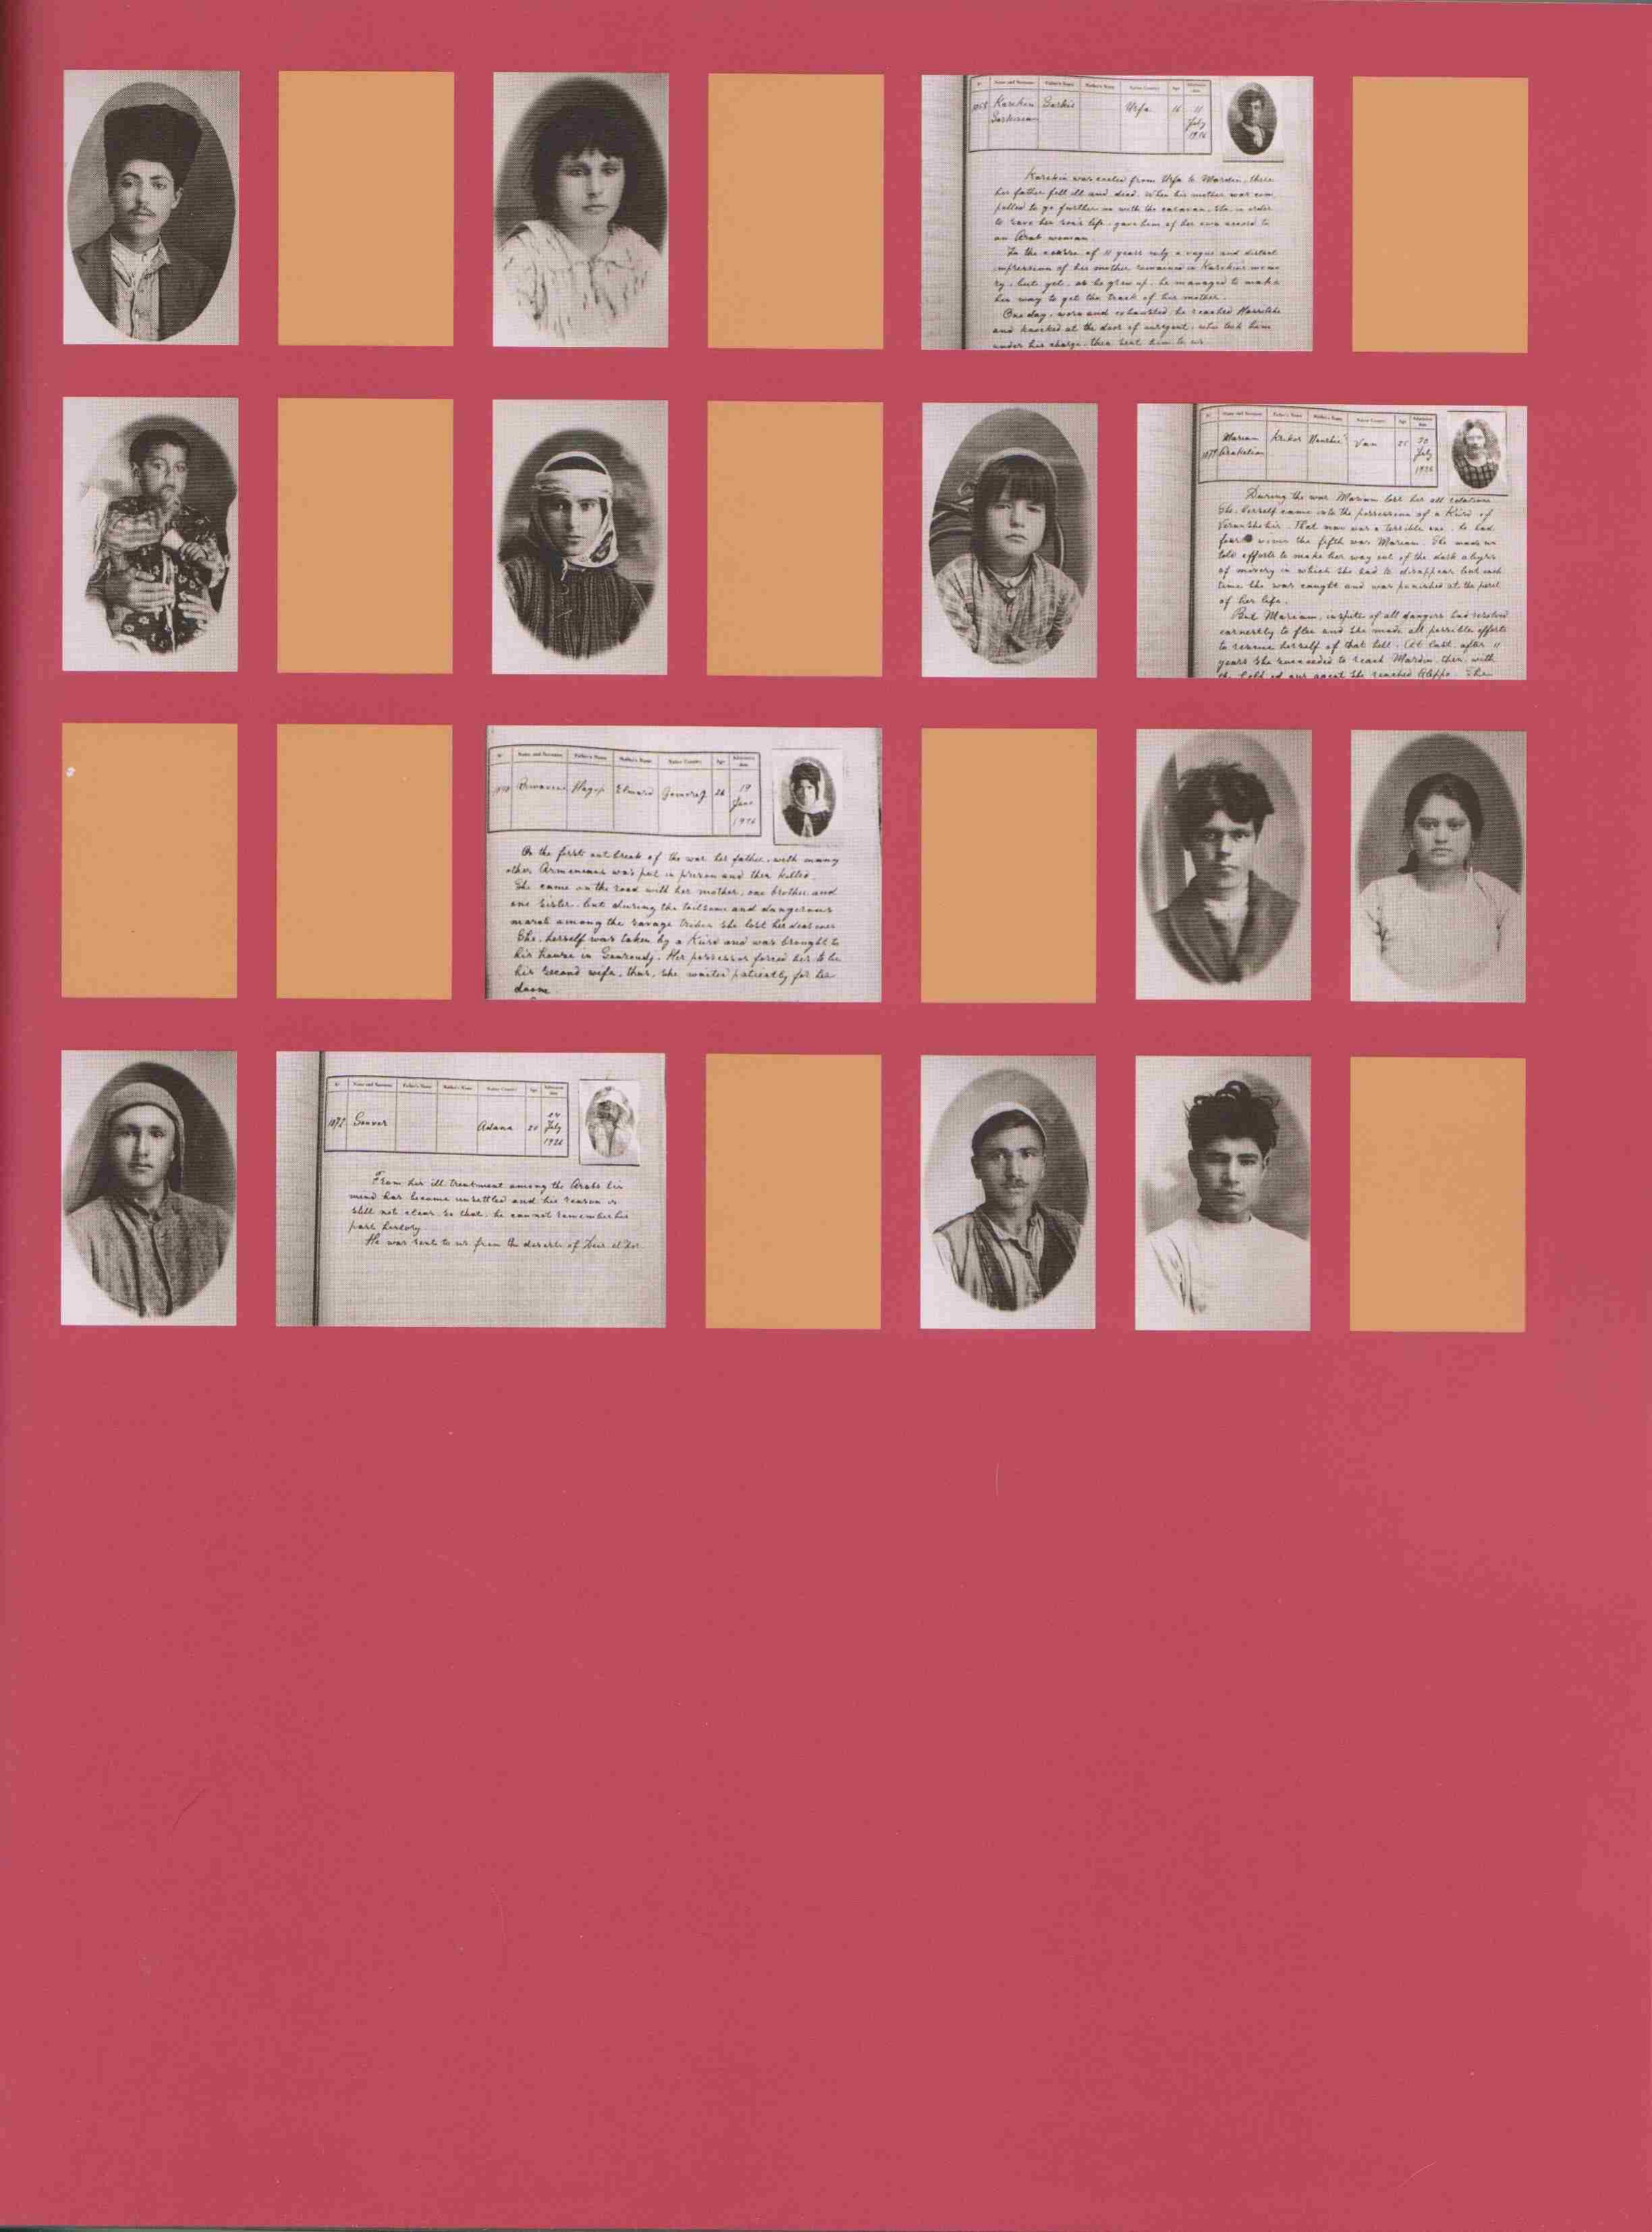 No Name and Surname Father's Name Mother's Name Native Country Age Admission date
Karekin Sarkis Urfa 16 11
Sarkissian July
1926
Karekin was exiled from Urfa to Mardin, there
his father fell ill and died. When his mother was com
pelled to go further on with the caravan, she in order
to save her son's life, gave him of her own accord to
an Arab woman.
In the course of 11 years only a vague and distant
impression of his mother remained in Karekin's memo
ry, but yet, as he grew up, he managed to make
his way to get the track of his mother.
One day, worn and exhausted, he reached
and knocked at the door of our agent, who took him
under his charge, then sent him to us
No Name and Surname Father's Name Mother's Name Native Country Age Admission date
Mariam Krikor Van 25 30
1079 Arakelian July
1926
During the war Mariam lost her all relations
She, herself came into the possession of a Kurd of
That man was a terrible one, he had
four wives the fifth was Mariam. She made un
told efforts to make her way out of the dark abyss
of misery in which she had to disappear but each
time she was caught and was punished at the peril
of her life.
But Mariam, inspite of all dangers had resolved
earnestly to flee and she made all possible efforts
to rescue herself of that hell. At last, after 11
years she succeeded to reach Mardin, then, with
the help of our agent she reached Aleppo. She
No Name and Surname Father's Name Mother's Name Native Country Age Admission date
Hagop 26 19
June
1926
On the first outbreak of the war her father, with many
other Armenians was put in prison and then killed.
She came on the road with her mother, one brother and
one sister, but during the toilsome and dangerous
march among the savage tribes she lost her dear ones
She, herself was taken by a Kurd and was brought to
his house in Her possessor forced her to be
his second wife, thus, she waited patiently for her
doom
No Name and Surname Father's Name Mother's Name Native Country Age Admission date
1072 Adana 20 24
July
1926
From his ill treatment among the Arabs his
mind has become unsettled and his reason is
still not clear, so that, he can not remember his
past history.
He was sent to us from the deserts of Deir-el-Zor